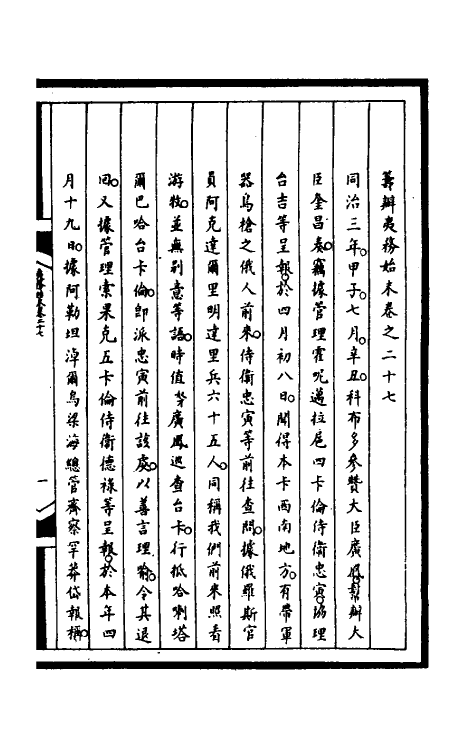 籌辦夷務始末卷之二十七
同治三年。甲子。七月。辛丑。科布多參贊大臣廣鳳。幫辦大
臣奎昌奏。竊據管理霍呢邁拉扈四卡倫侍衞忠寅。協理
台吉等呈報。於四月初八日。聞得本卡西南地方。有帶軍
器鳥槍之俄人前來。侍衞忠寅等前往查問。據俄羅斯官
員阿克達爾里明達里兵六十五人。同稱我們前來照看
游牧。並無別意等語。時值廣鳳巡查台卡。行抵哈喇塔
爾巴哈台卡倫。卽派忠寅前往該處。以善言理喻。令其退
回。又據管理索果克五卡倫侍衞德祿等呈報。於本年四
月十九日。據阿勒坦淖爾烏梁海總管齋察罕莽岱報稱。
一